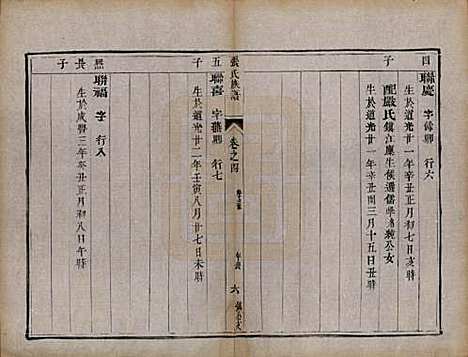 四子
聯慶 字餘卿 行六
生於道光廿一年辛丑正月初七日亥時
配嚴氏鎮江廩生候選儒學 公女
生於道光廿一年辛丑閏三月十五日丑時
張氏族譜 卷之四 六
五子
聯喜 字 卿 行七
生於道光廿二年壬寅八月廿七日未時
熙長子
聯福 字 行八
生於咸豐三年癸丑正月初八日午時